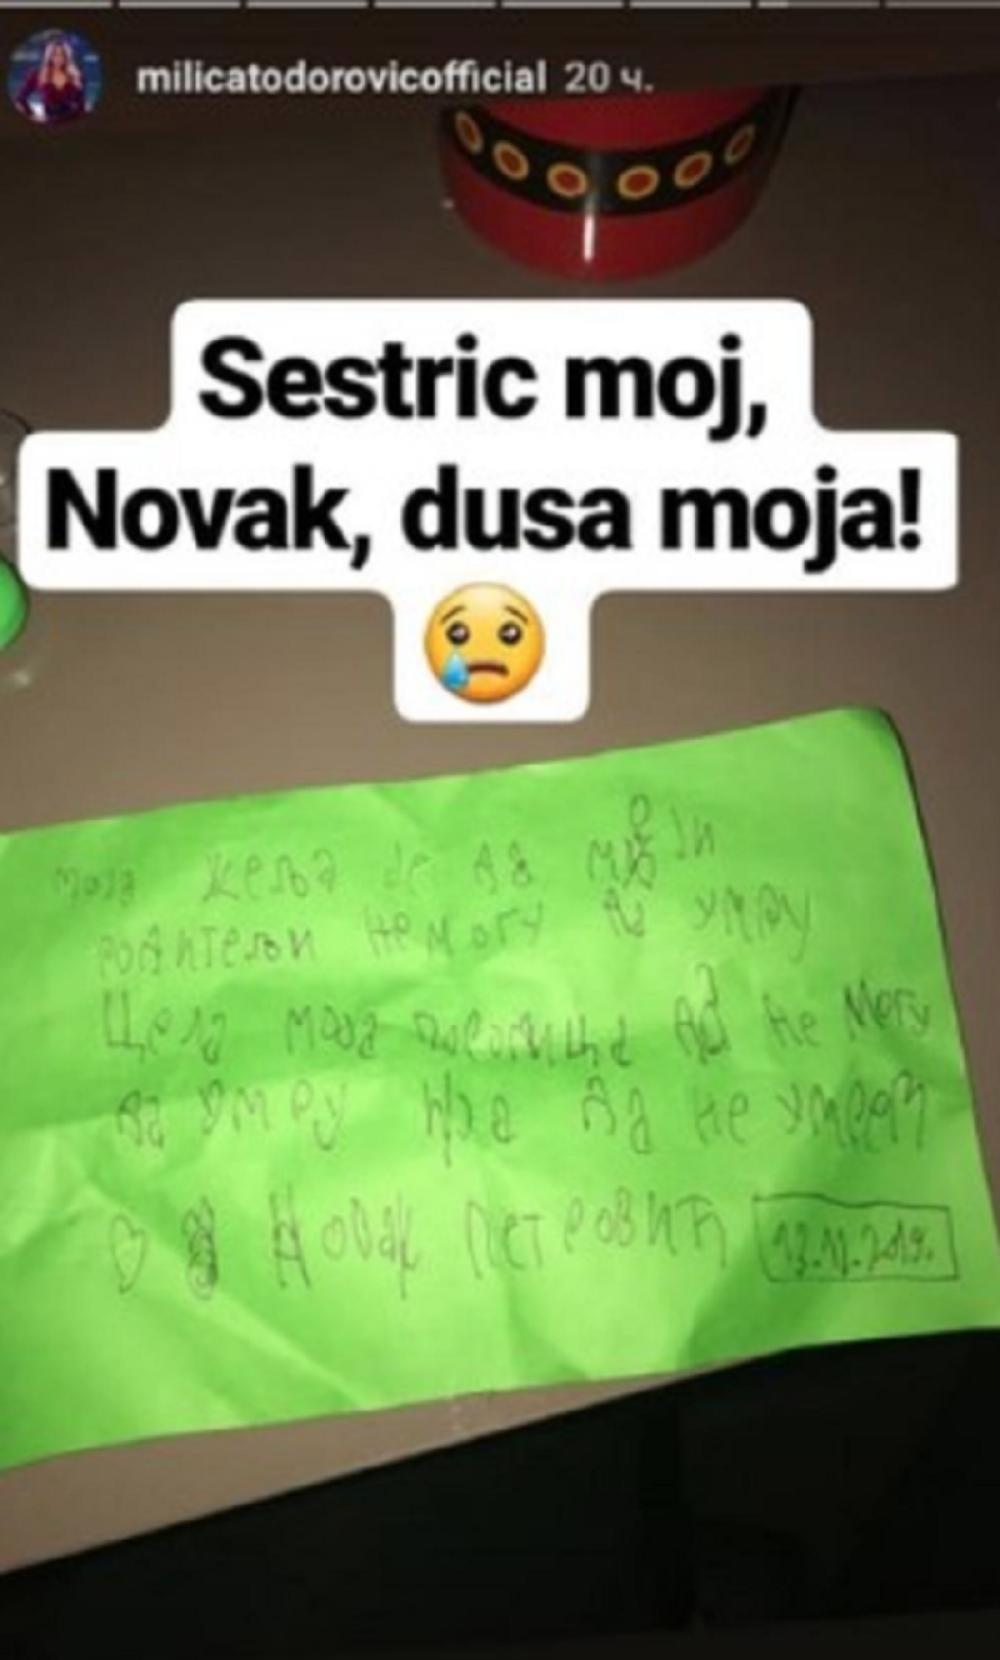 milicatodorovicofficial 20 ч.
Sestric moj,
Novak, dusa moja!
😢
моја жеља је да моји
родитељи не могу да умру
Цела моја породица да не могу
да умру да не умрем
Новак Петровић 13.11.2019.